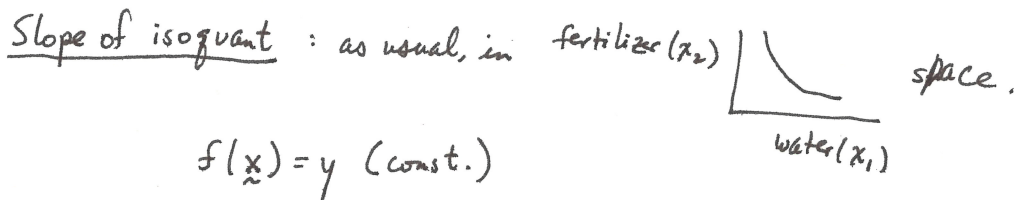 Slope of isoquant : as usual, in fertilizer (x₂) space.
water (x₁)
f(x̰) = y (const.)